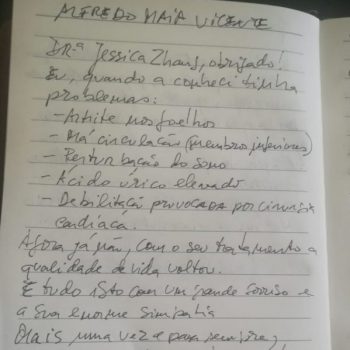 ALFREDO MAIA VICENTE
DR.ª Jessica Zhang, obrigado!
Eu, quando a conheci tinha
problemas:
- Artrite nos joelhos
- Má circulação (membros inferiores)
- Perturbação do sono
- Ácido úrico elevado
- Debilitação PROVOCADA por cirurgia
cardíaca.
Agora já não, com o seu tratamento a
qualidade de vida voltou.
E tudo isto com um grande sorriso e
a sua enorme simpatia
Mais uma vez e para sempre,